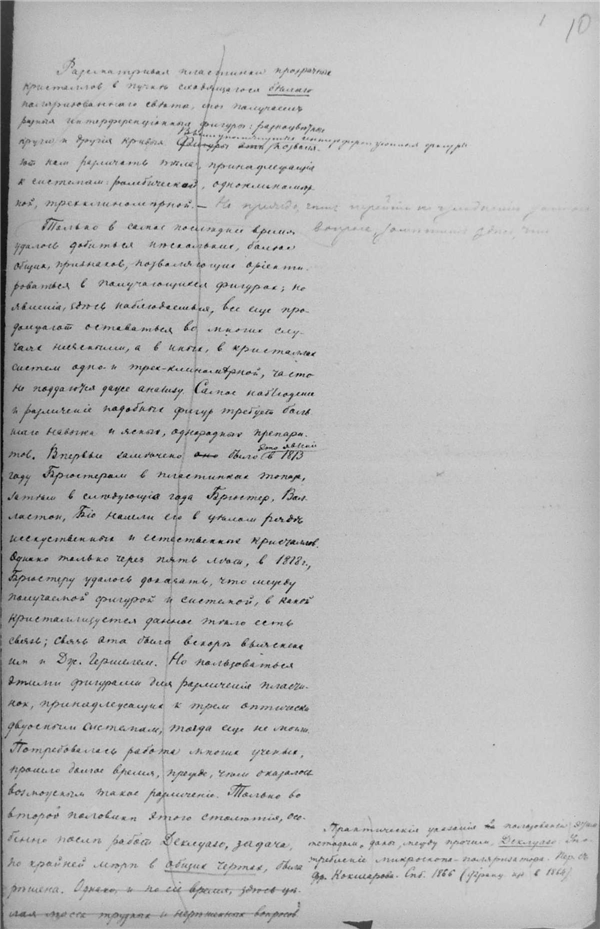 10
Разсматривая пластинки прозрачных
кристаллов в пучке сходящагося белаго
поляризованнаго света, мы получаем
разныя интерференционныя фигуры: разноцветные
круги и другия кривыя. интерференционныя фигуры
позволя-
ют нам различать тела, принадлежащия
к системам: ромбической, одноклиномер-
ной, трехклиномерной. —
Только в самое последнее время
удалось добиться нескольких, более
общих, признаков, позволяющих ориенти-
роваться в получающихся фигурах; но
явления, здесь наблюдаемыя, все еще про-
должают оставаться во многих слу-
чаях неясными, а в иных, в кристаллах
систем одно- и трех-клиномерной, часто
не поддаются даже анализу. Самое наблюдение
и различение подобных фигур требует боль-
шаго навыка и ясных, однородных препара-
тов. Впервые замечено было это явление в 1813
году Брюстером в пластинках топаза,
затем в следующия года Брюстер, Вол-
ластон, Био нашли его в целом ряде
искусственных и естественных кристаллов.
Однако только через пять лет, в 1818 г.,
Брюстеру удалось доказать, что между
получаемой фигурой и системой, в какой
кристаллизуется данное тело есть
связь; связь эта была вскоре выяснена
им и Дж. Гершелем. Но пользоваться
этими фигурами для различения пласти-
нок, принадлежащих к трем оптически
двуосным системам, тогда еще не могли.
Потребовалась работа многих ученых,
прошло долгое время, прежде, чем оказалось
возможным такое различение. Только во
второй половине этого столетия, осо-
бенно после работ Деклуазо, задача,
по крайней мере в общих чертах, была
решена. Однако и по сие время, здесь це-
лая масса трудных и нерешенных вопросов
Практическия указания пользования этим
методом, дает между прочим, Деклуазо
микроскопа. Пер.
Кокшарова. Спб. 1866 в 1864)